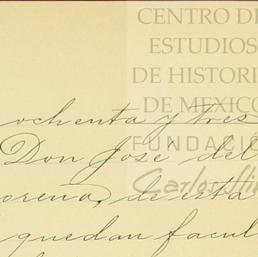 CENTRO DE
ESTUDIOS
DE HISTORI
DE MEXICO
FUNDACIÓ
Carlos Sli
ochenta y tres
Don Jose del
orena, de esta
quedan facul